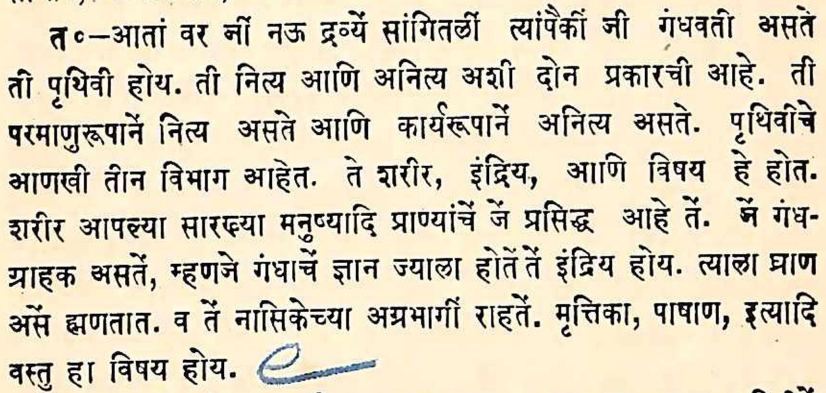 त०—आतां वर जीं नऊ द्रव्यें सांगितलीं त्यांपैकीं जी गंधवती असते
ती पृथिवी होय. ती नित्य आणि अनित्य अशी दोन प्रकारची आहे. ती
परमाणुरूपानें नित्य असते आणि कार्यरूपानें अनित्य असते. पृथिवीचे
आणखी तीन विभाग आहेत. ते शरीर, इंद्रिय, आणि विषय हे होत.
शरीर आपल्या सारख्या मनुष्यादि प्राण्यांचें जें प्रसिद्ध आहे तें. जें गंध-
ग्राहक असतें, म्हणजे गंधाचें ज्ञान ज्याला होतें तें इंद्रिय होय. त्याला घ्राण
असें ह्मणतात. व तें नासिकेच्या अग्रभागीं राहतें. मृत्तिका, पाषाण, इत्यादि
वस्तु हा विषय होय.